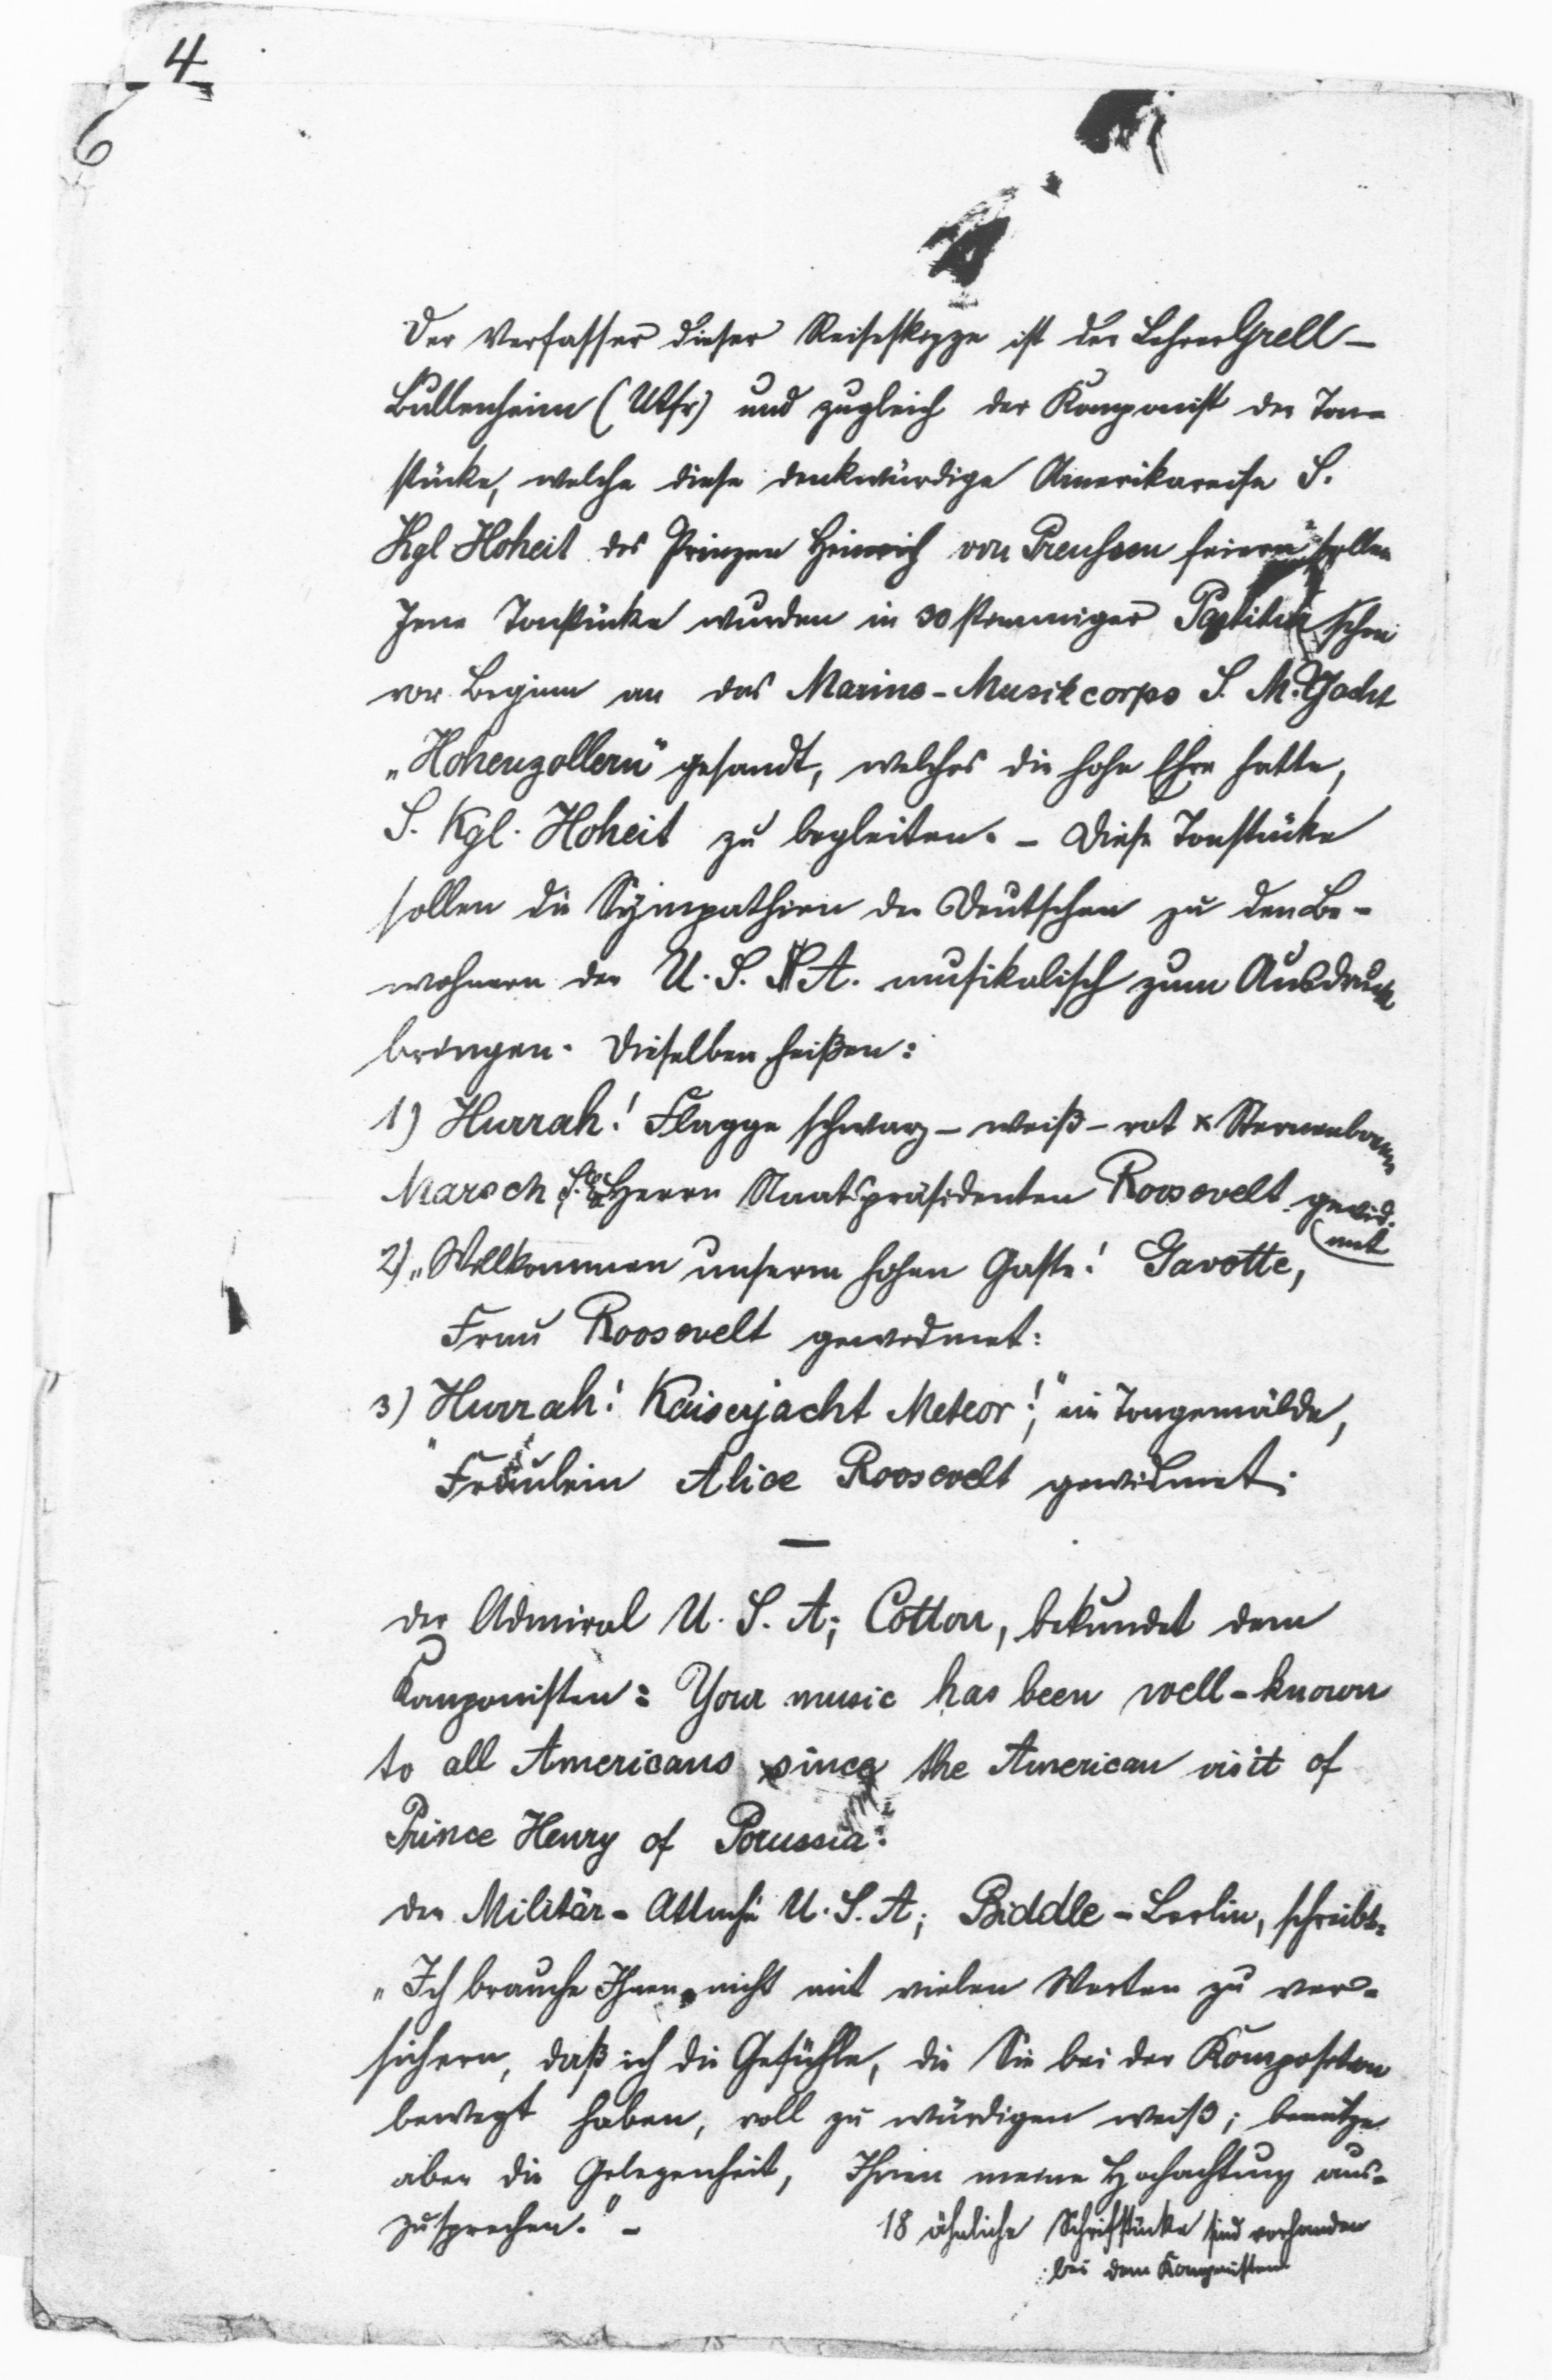 4
6
Der Verfasser dieser Reiseskizze ist der Lehrer Grell-
Bullenheim (Ufr) und zugleich der Komponist der Ton-
stücke, welche diese denkwürdige Amerikareise S.
Kgl Hoheit des Prinzen Heinrich von Preussen feiern sollen
Jene Tonstücke wurden in 30 stimmiger Partitur schon
vor Beginn an das Marine-Musikcorps S. M. Yacht
„Hohenzollern" gesandt, welches die hohe Ehre hatte,
S. Kgl. Hoheit zu begleiten. - Diese Tonstücke
sollen die Sympathien der Deutschen zu den Be-
wohnern der U. S. A. musikalisch zum Ausdruck
bringen. Dieselben heißen:
1) Hurrah! Flagge schwarz-weiß-rot & Sternenbanner
Marsch, Herrn Staatspräsidenten Roosevelt gewid-
met
2) „Willkommen unserm hohen Gaste! Gavotte,
Frau Roosevelt gewidmet:
3) „Hurrah! Kaiserjacht Meteor!", ein Tongemälde,
Fräulein Alice Roosevelt gewidmet.
—
Der Admiral U. S. A; Cotton, bekundet dem
Komponisten: Your music has been well-known
to all Americans since the American visit of
Prince Henry of Porussia.
Der Militär-Attaché U. S. A; Biddle-Berlin, schreibt:
„Ich brauche Ihnen nicht mit vielen Worten zu ver-
sichern, daß ich die Gefühle, die Sie bei der Komposition
bewegt haben, voll zu würdigen weiß; benütze
aber die Gelegenheit, Ihnen meine Hochachtung aus-
zusprechen." -
18 ähnliche Schriftstücke sind vorhanden
bei dem Komponisten